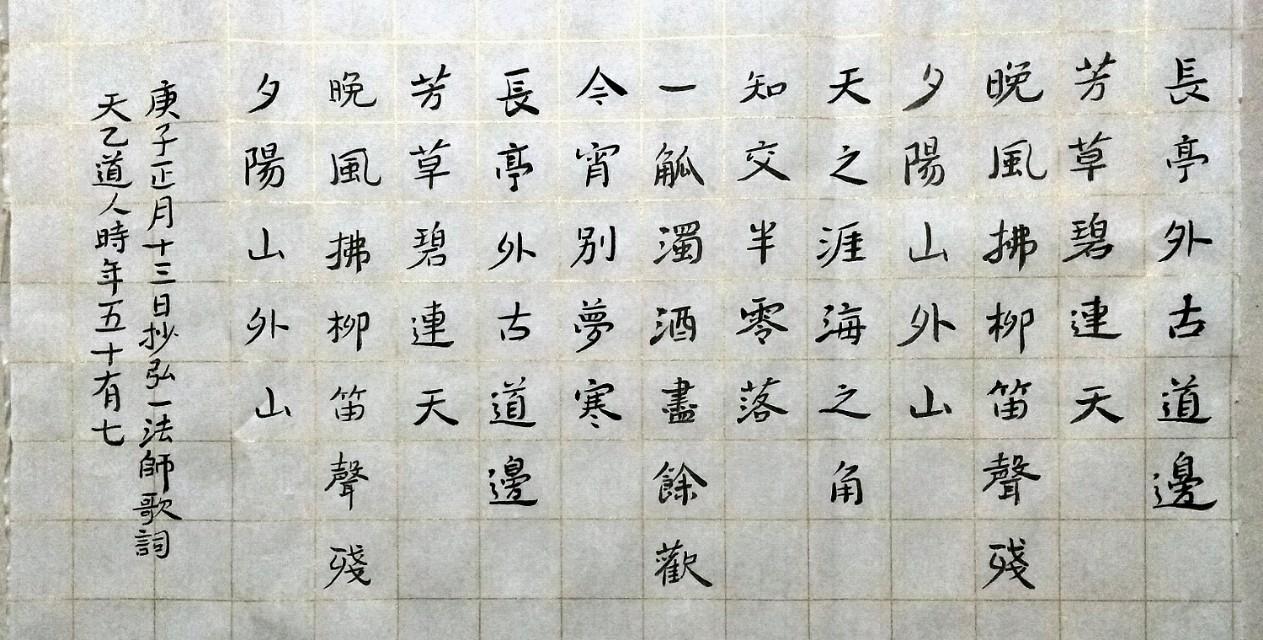 長亭外古道邊
芳草碧連天
晚風拂柳笛聲殘
夕陽山外山
天之涯海之角
知交半零落
一觚濁酒盡餘歡
今宵別夢寒
長亭外古道邊
芳草碧連天
晚風拂柳笛聲殘
夕陽山外山
庚子正月十三日抄弘一法師歌詞
天乙道人時年五十有七